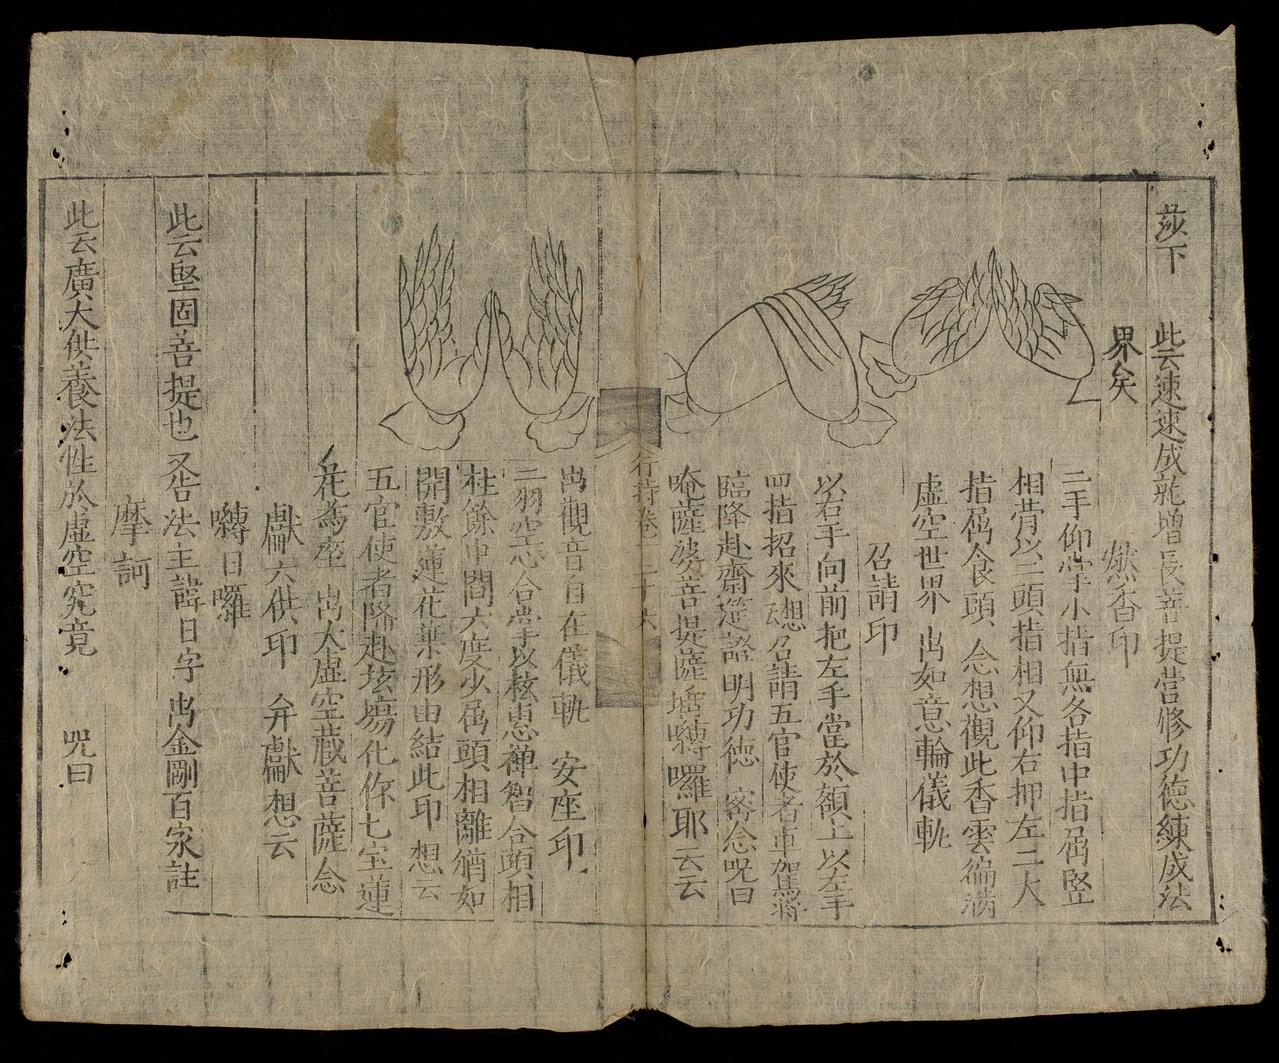 莎下 此云速速成就增長菩提営修功徳練成法
界矣
燃香印
二手仰掌小指無名指中指啚竪
相背以二頭指相叉仰右押左二大
指啚食頭 念想觀此香雲徧满
虛空世界 出如意輪儀軌
召請印
以右手向前把左手當於額上以左手
四指招來 想召請五官使者車駕將
臨降赴齋筵證明功徳 密念呪曰
唵薩婆菩提薩埵嚩囉耶云云
行持卷二十六
出觀音自在儀軌 安座印
二羽空心合掌以檢恵禅智合頭相
柱餘中間六度少啚頭相離猶如
開敷蓮花葉形由結此印 想云
五官使者降赴垓塲化作七宝蓮
花為座 出大虛空蔵菩薩念
獻六供印 弁獻想云
嚩日囉
此云堅固菩提也又告法主諱日字 出金剛百家註
摩訶
此云廣大供養法性於虛空究竟 呪曰